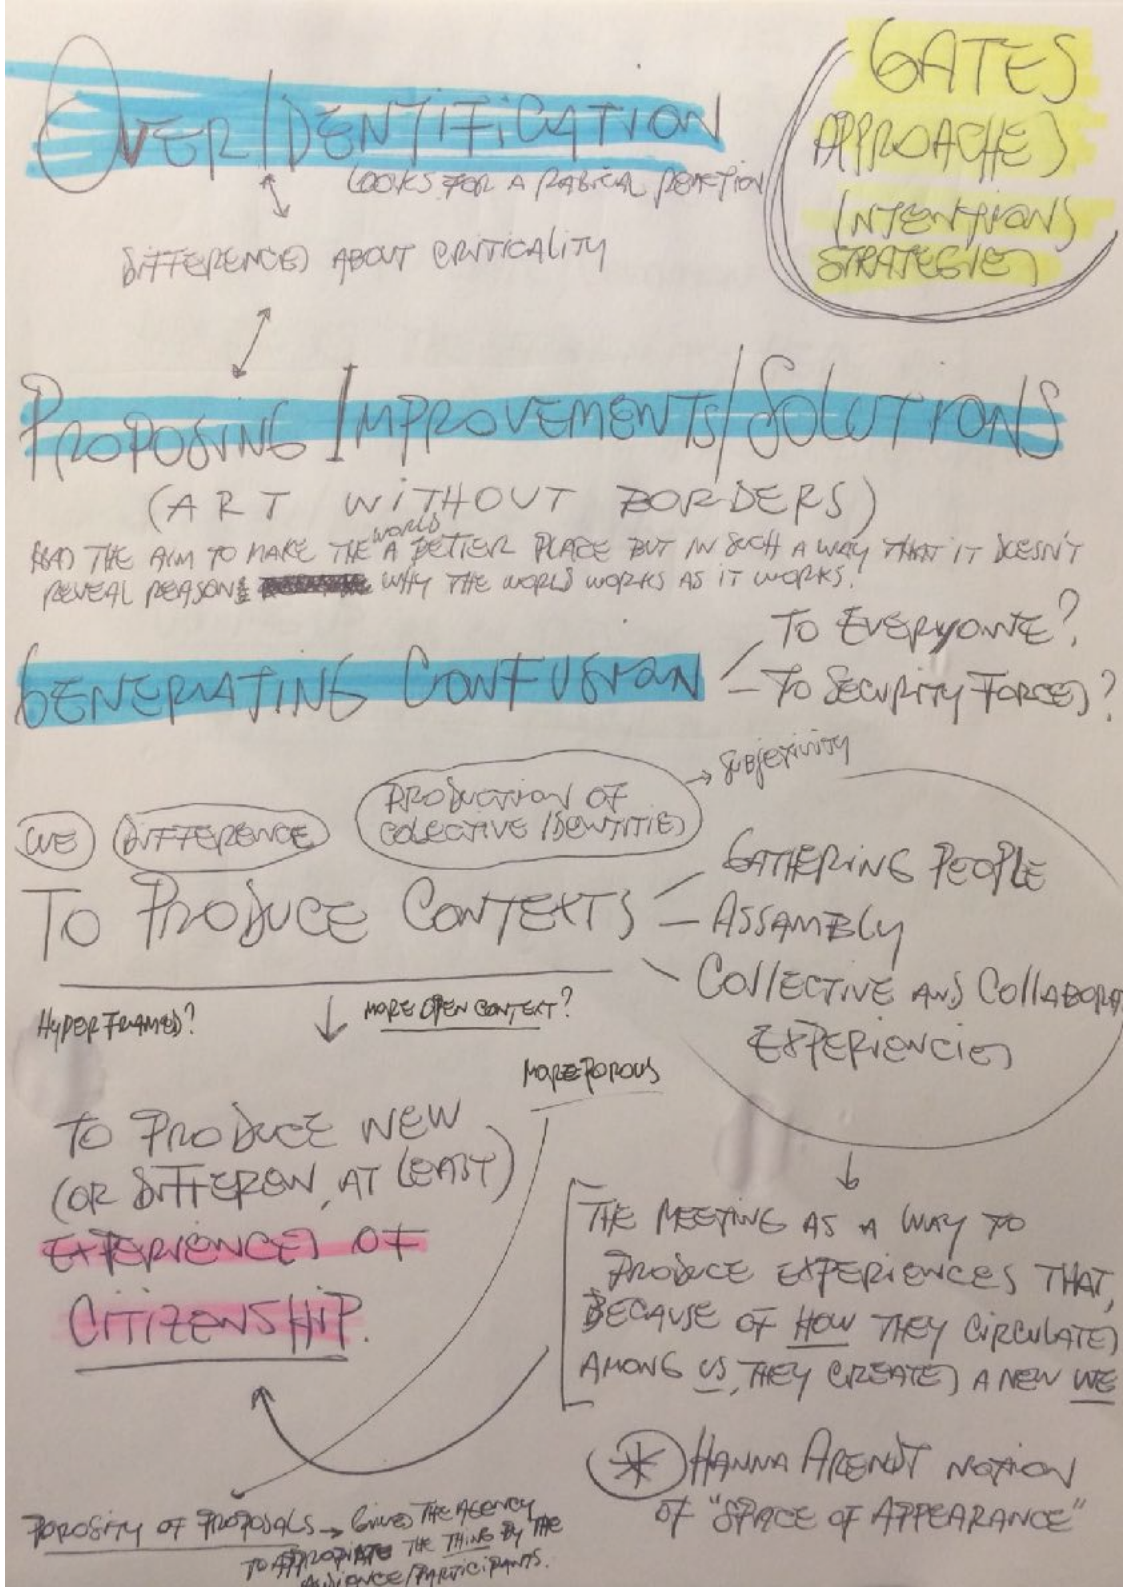 OVER/IDENTIFICATION
LOOKS FOR A RADICAL REACTION
GATES
APPROACHES
INTENTIONS
STRATEGIES
DIFFERENCES ABOUT CRITICALITY
PROPOSING IMPROVEMENTS/SOLUTIONS
(ART WITHOUT BORDERS)
HAS THE AIM TO MAKE THE WORLD A BETTER PLACE BUT IN SUCH A WAY THAT IT DOESN'T
REVEAL REASONS WHY THE WORLD WORKS AS IT WORKS.
GENERATING CONFUSION
TO EVERYONE?
TO SECURITY FORCES?
WE
DIFFERENCE
PRODUCTION OF
COLECTIVE IDENTITIES
SUBJETIVITY
TO PRODUCE CONTEXTS
GATHERING PEOPLE
ASSAMBLY
COLLECTIVE AND COLLABORA
EXPERIENCIES
HYPER FRAMED?
MORE OPEN CONTEXT?
MORE POROUS
TO PRODUCE NEW
(OR DIFFEREN, AT LEAST)
EXPERIENCES OF
CITIZENSHIP.
THE MEETING AS A WAY TO
PRODUCE EXPERIENCES THAT,
BECAUSE OF HOW THEY CIRCULATES
AMONG US, THEY CREATES A NEW WE
* HANNA ARENDT NOTION
OF "SPACE OF APPEARANCE"
POROSITY OF PROPOSALS → GIVES THE AGENCY
TO APPROPIATE THE THING BY THE
AUDIENCE/PARTICIPANTS.